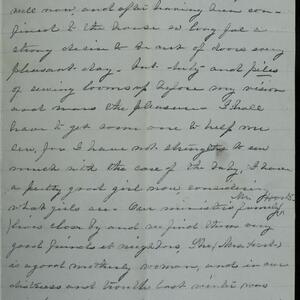 well now and after having been con-
fined to the house so long feel a
strong desire to be out of doors every
pleasant day. but duty and piles
of sewing looms up before my vision
and mars the pleasure. I shall
have to get some one to help me
sew, for I have not strength to sew
much with the care of the baby. I have
a pretty good girl now, considering
what girls are. Our minister Mr family
lives close by and we find them very
good friends & neighbors. She, Mrs
is a good motherly woman, and in our
distress and trouble last winter was